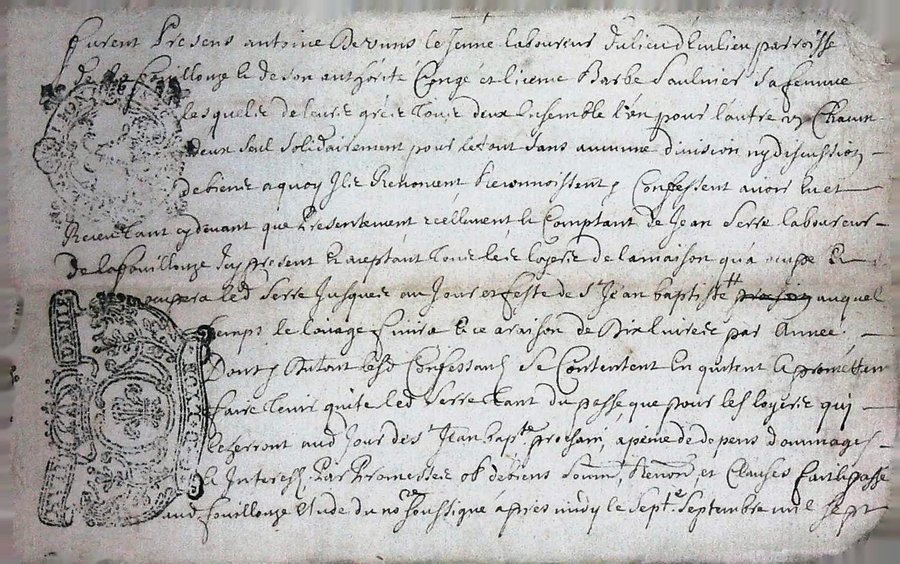 furent Presens antoine Devuns le Jeune laboureur du lieu d'Eulieu parroisse
de la fouillouze & de son authorité Congé et licence Barbe Saulnier sa femme
lesquelz de leurs grés Tous deux Ensemble l'un pour l'autre Chacun
deux seul solidairement pour le tout sans aucune division ny discussion
de biens a quoy Ils Renoncent Reconnoissent Confessent avoir Eu et
Receu tant cydevant que Presentement réellement & Comptant de Jean Serre laboureur
de la fouillouze Icy present & acceptant Tous les loyers de la maison qu'a occupé &
occupera led Serre Jusques au Jour et feste de St Jean baptiste auquel
temps le louage finira & ce a raison de Dix livres par Année
Dont du tout lesd Confessans se Contentent En quitent & promettent
faire tenir quite led Serre tant du passé que pour les loyers qui
led Jour de St Jean bapte prochain, a peine de depens dommages
& Interestz Par Promesses ob de biens Soumis, Renonn, et Clauses fait & passé
aud fouillouze Etude du nore soussigné apres midy le septe Septembre mil sept